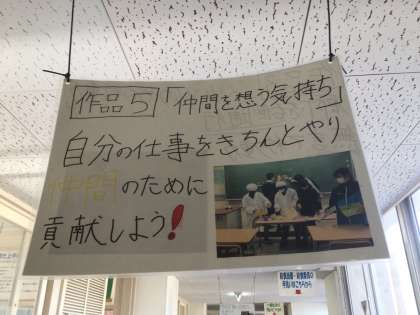 作品5 「仲間を想う気持ち」
自分の仕事をきちんとやり
仲間のために
貢献しよう!